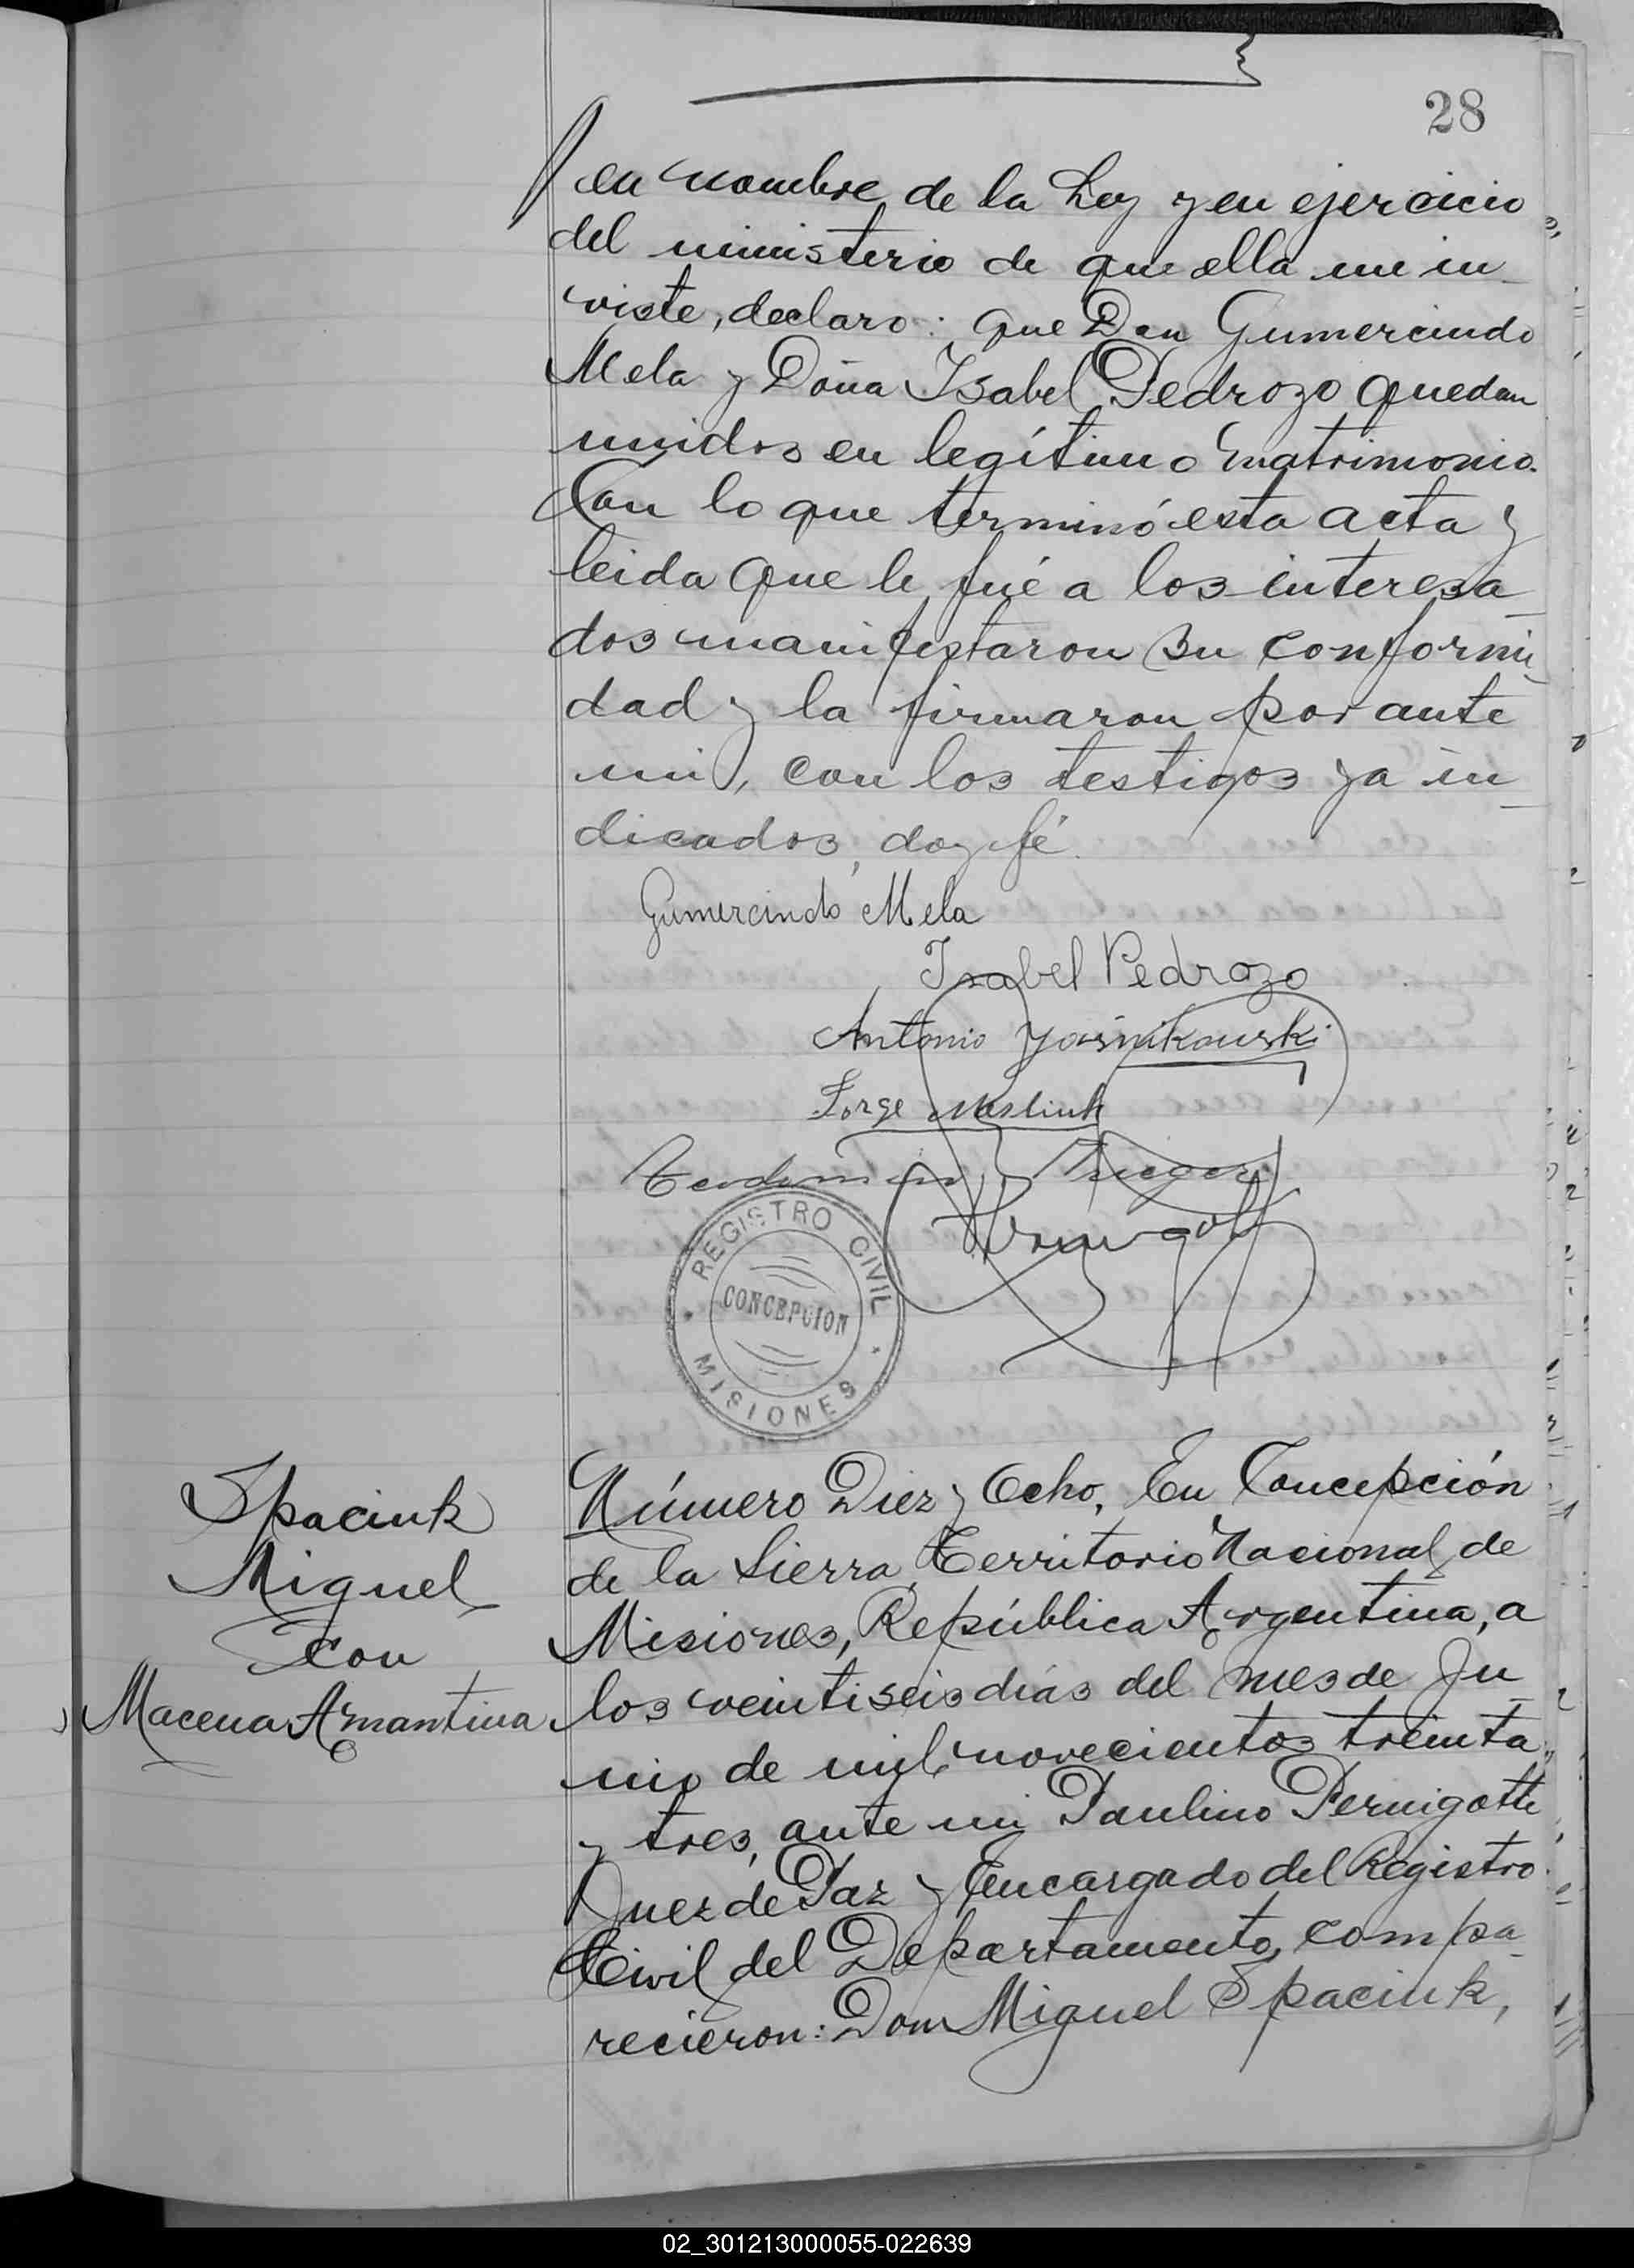 28
en nombre de la Ley y en ejercicio
del ministerio de que ella me in_
viste, declaro: que Don Gumercindo
Mela y Doña Isabel Pedrozo quedan
unidos en legítimo matrimonio.
Con lo que terminó esta acta y
leida que le fué a los interesa_
dos manifestaron su conformi_
dad y la firmaron por ante
mi, con los testigos ya in_
dicados, doy fé.
Gumercindo Mela
Isabel Pedrozo
Antonio
Jorge
REGISTRO CIVIL
CONCEPCION
MISIONES
Spaciuk
Miguel
con
Macena Amantina
Número Diez y Ocho, En Concepción
de la Sierra, Territorio Nacional de
Misiones, República Argentina, a
los veintiseis días del mes de Ju_
nio de mil novecientos treinta
y tres, ante mi Paulino Pernigotti
Juez de Paz y Encargado del Registro
Civil del Departamento, compa_
recieron: Don Miguel Spaciuk,
02_301213000055-022639